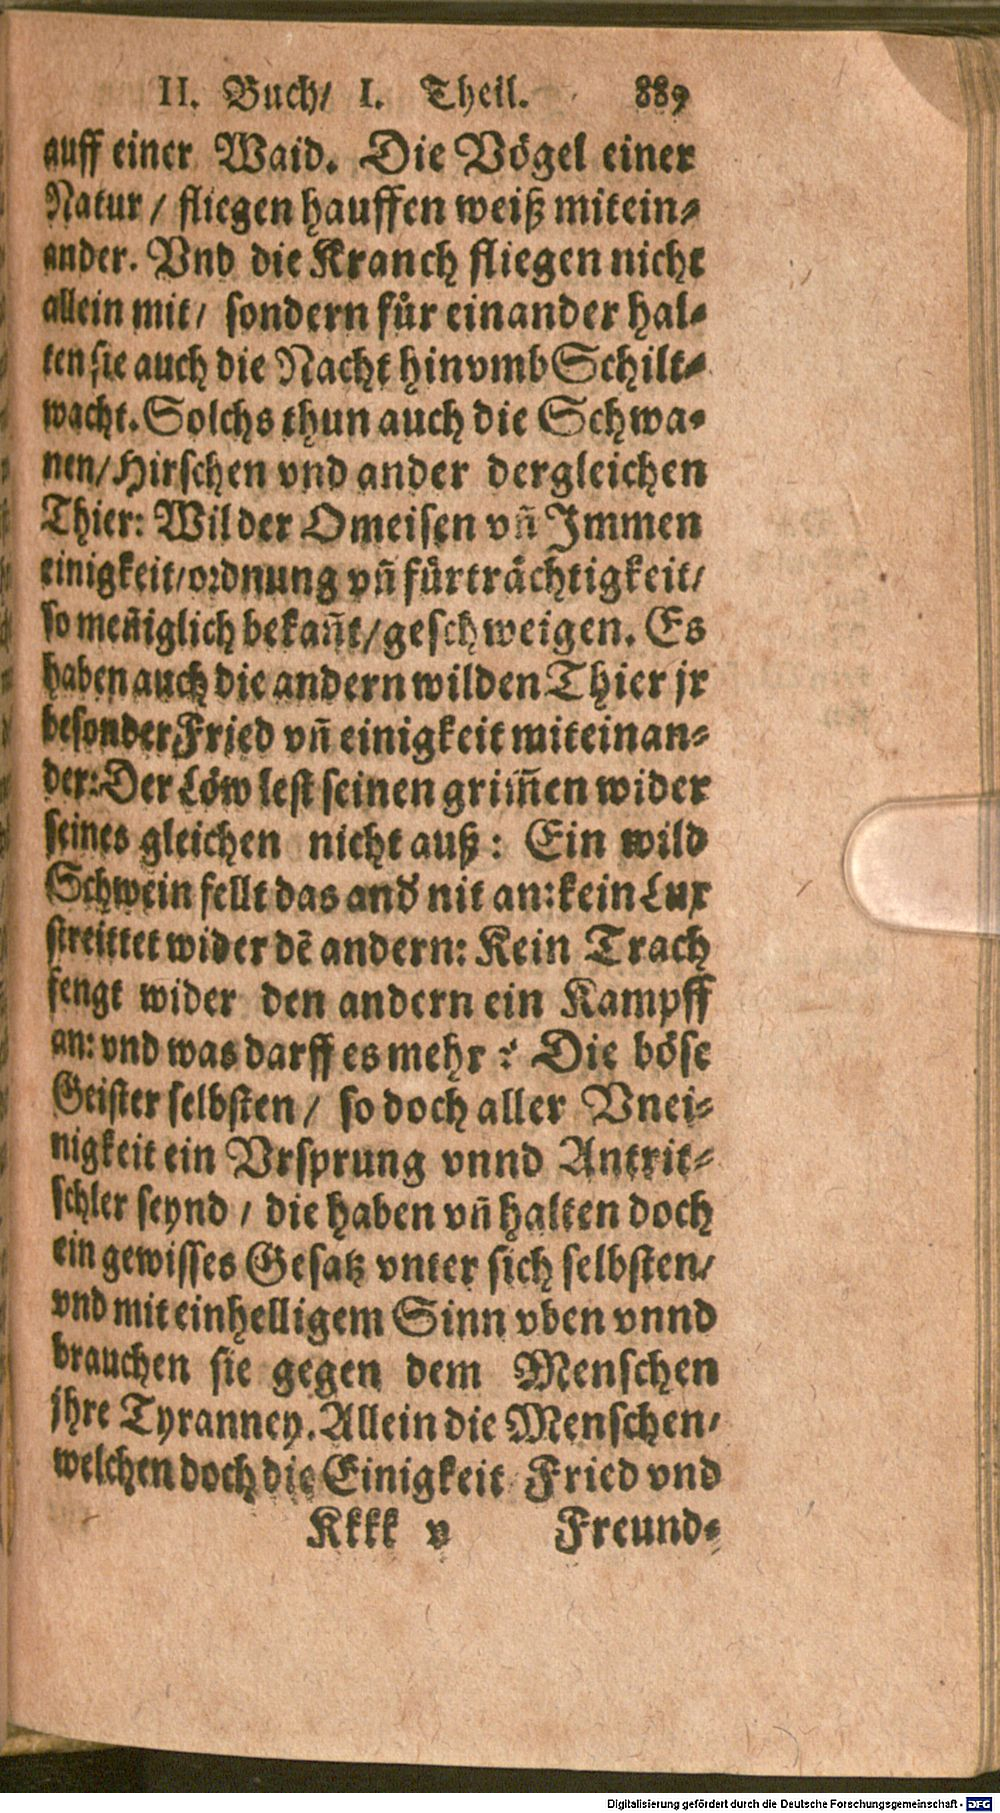 II. Buch/ I. Theil. 889
auff einer Waid. Die Vögel einer
Natur / fliegen hauffen weiß mitein-
ander. Vnd die Kranch fliegen nicht
allein mit/ sondern fuͤr einander hal-
ten sie auch die Nacht hinvmb Schilt-
wacht. Solchs thun auch die Schwa-
nen/ Hirschen vnd ander dergleichen
Thier: Wil der Omeisen vñ Immen
einigkeit/ ordnung vñ fuͤrtraͤchtigkeit/
so meñiglich bekañt/ geschweigen. Es
haben auch die andern wilden Thier jr
besonder Fried vñ einigkeit miteinan-
der: Der Löw lest seinen grim̃en wider
seines gleichen nicht auß: Ein wild
Schwein fellt das and̕ nit an: kein Lux
streittet wider dē andern: Kein Trach
fengt wider den andern ein Kampff
an: vnd was darff es mehr? Die böse
Geister selbsten / so doch aller Vnei-
nigkeit ein Vrsprung vnnd Antrit-
schler seynd / die haben vñ halten doch
ein gewisses Gesatz vnter sich selbsten/
vnd mit einhelligem Sinn vben vnnd
brauchen sie gegen dem Menschen
jhre Tyranney. Allein die Menschen/
welchen doch die Einigkeit Fried vnd
Kkkk v Freund-
Digitalisierung gefördert durch die Deutsche Forschungsgemeinschaft - DFG